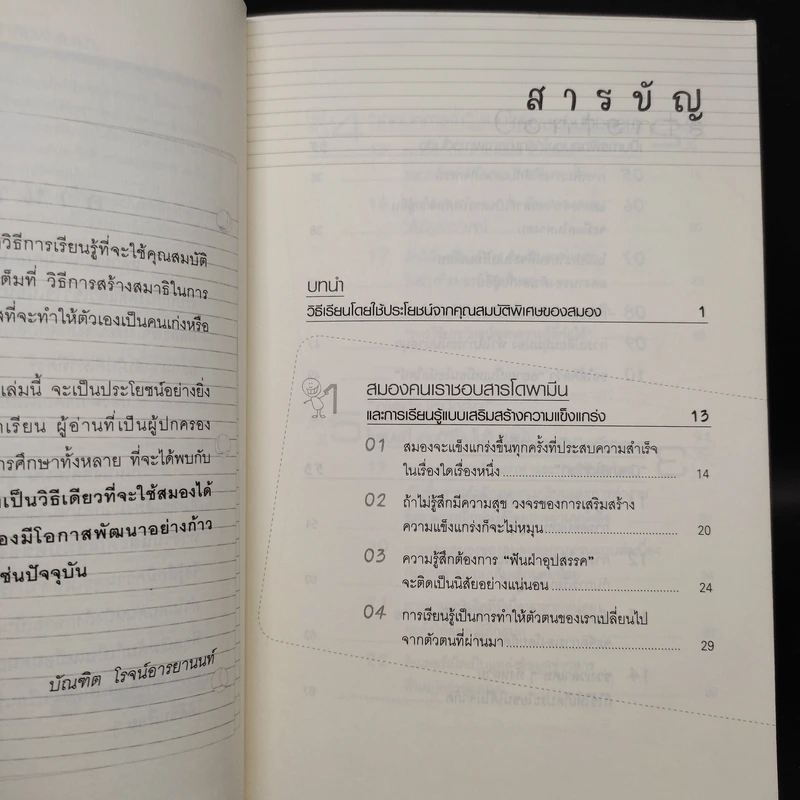 วิธีการเรียนรู้ที่จะใช้คุณสมบัติ
เต็มที่ วิธีการสร้างสมาธิในการ
ที่จะทำให้ตัวเองเป็นคนเก่งหรือ
เล่มนี้ จะเป็นประโยชน์อย่างยิ่ง
ผู้อ่านที่เป็นผู้ปกครอง
การศึกษาทั้งหลาย ที่จะได้พบกับ
เป็นวิธีเดียวที่จะใช้สมองได้
มีโอกาสพัฒนาอย่างก้าว
เช่นปัจจุบัน
บัณฑิต โรจน์อารยานนท์
สารบัญ
บทนำ
วิธีเรียนโดยใช้ประโยชน์จากคุณสมบัติพิเศษของสมอง 1
1 สมองคนเราชอบสารโดพามีน
และการเรียนรู้แบบเสริมสร้างความแข็งแกร่ง 13
01 สมองจะแข็งแกร่งขึ้นทุกครั้งที่ประสบความสำเร็จ
ในเรื่องใดเรื่องหนึ่ง 14
02 ถ้าไม่รู้สึกมีความสุข วงจรของการเสริมสร้าง
ความแข็งแกร่งก็จะไม่หมุน 20
03 ความรู้สึกต้องการ "ฟันฝ่าอุปสรรค"
จะติดเป็นนิสัยอย่างแน่นอน 24
04 การเรียนรู้เป็นการทำให้ตัวตนของเราเปลี่ยนไป
จากตัวตนที่ผ่านมา 29